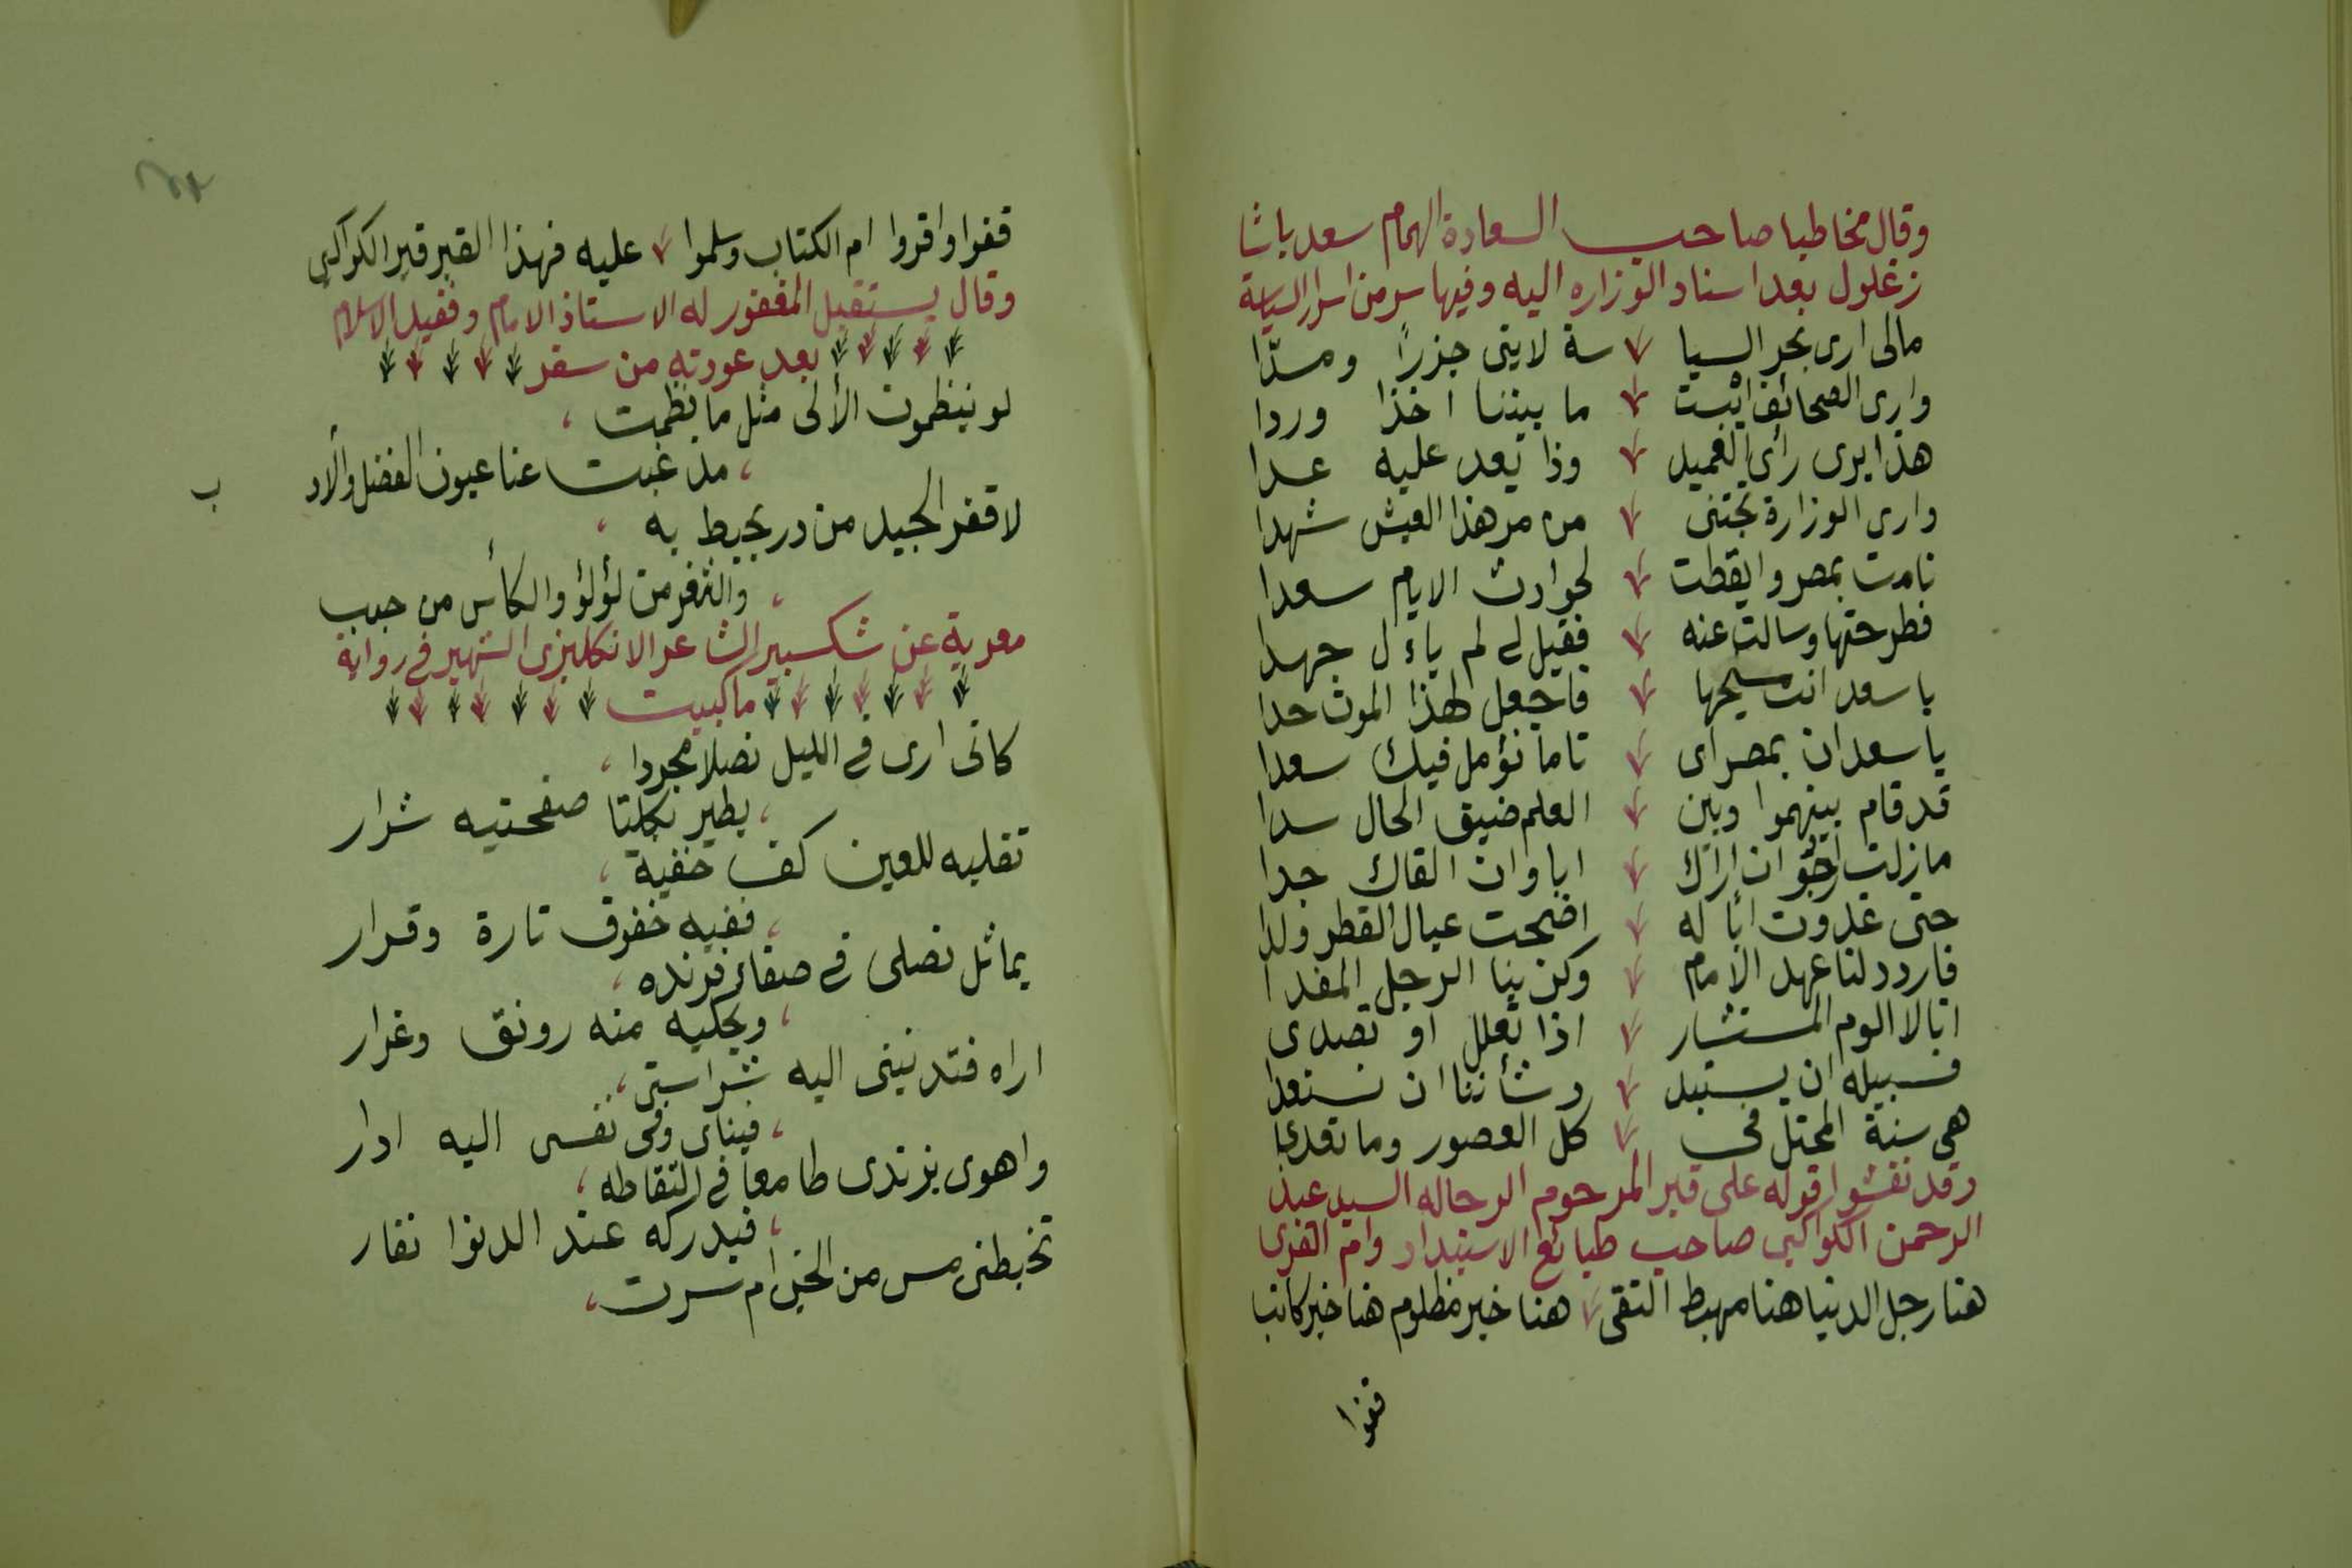 وقال مخاطبا صاحب السعادة الهمام سعد باشا
زغلول بعد اسناد الوزاره اليه وفيها سر من اسرار السياسة
مالى ارى بحر السيا سة لاينى جزرًا ومدّا
وارى الصحائف ايبست ما بيننا اخذا وردا
هذا يرى رأى العميد وذا يعد عليه عدا
وارى الوزارة تجتنى من مر هذا العيش شهدا
نامت بمصر وايقظت لحوادث الايام سعدا
فطرحتها وسالت عنه فقيل لى لم ياءل جهدا
ياسعد انت مسيحها فاجعل لهذا الموت حدا
ياسعد ان بمصر اى تاما نؤمل فيك سعدا
قد قام بينهموا وبين العلم ضيق الحال سدا
مازلت ارجو ان اراك ابا وان القاك جدا
حتى غدوت أبا له اضحت عيال القطر ولدا
فاردد لنا عهد الامام وكن بنا الرجل المفدا
انا لا الوم المستشار اذا تعلل او تصدى
فسبيله ان يستبد وشأننا ان نستعدا
هى سنة المحتل فى كل العصور وما تعدى
وقد نقشوا قوله على قبر المرحوم الرحاله السيد عبد
الرحمن الكواكبى صاحب طبائع الاستبداد وام القرى
هنا رجل الدنيا هنا مهبط التقى هنا خير مظلوم هنا خير كاتب
قفوا
قفوا واقروا ام الكتاب وسلموا عليه فهذا القبر قبر الكواكبى
وقال يستقبل المغفور له الاستاذ الامام وفقيد الاسلام
بعد عودته من سفر
لو ينظمون الألى مثل ما نظمت
مذ غبت عنا عيون الفضل والاد
ب
لاقفر الجيد من در يحيط به
والثغر من لؤلؤ والكأس من حبب
معربة عن شكسبير الشاعر الانكليزى الشهير فى رواية
ماكبيت
كانى ارى فى الليل نصلا مجردا
يطير بكلتا صفحتيه شرار
تقلبه للعين كف خفية
ففيه خفوق تارة وقرار
يماثل نصلى فى صفاء فرنده
ويحكيه منه رونق وغرار
اراه فتدنينى اليه شراستى
فيناى وفى نفسى اليه ادار
واهوى بزندى طامعا فى التقاطه
فيدركه عند الدنوا نفار
تخبطنى مس من الجن ام سرت